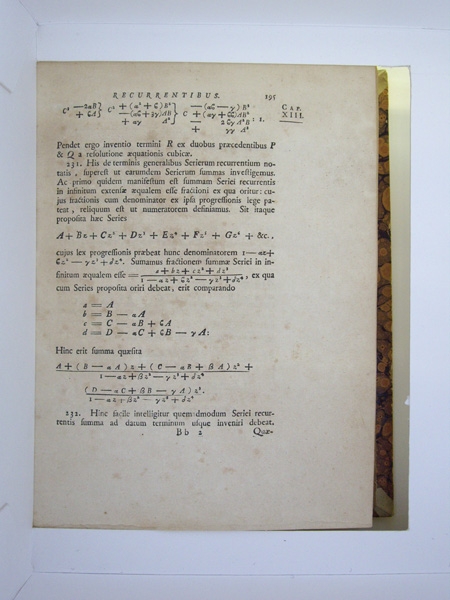 RECURRENTIBUS. 195
C³ — 2αB} C² + (α² + ϐ) B² } C — (αϐ — γ) B³ CAP.
+ ϐA} — (αϐ + 3γ) AB } + (αγ + ϐϐ) AB² XIII.
+ αγ A² } — 2ϐγ A²B : 1.
+ γγ A³
Pendet ergo inventio termini R ex duobus præcedentibus P
& Q a resolutione æquationis cubicæ.
231. His de terminis generalibus Serierum recurrentium no-
tatis, superest ut earundem Serierum summas investigemus.
Ac primo quidem manifestum est summam Seriei recurrentis
in infinitum extensæ æqualem esse fractioni ex qua oritur: cu-
jus fractionis cum denominator ex ipsa progressionis lege pa-
teat, reliquum est ut numeratorem definiamus. Sit itaque
proposita hæc Series
A + Bz + Cz² + Dz³ + Ez⁴ + Fz⁵ + Gz⁶ + &c.,
cujus lex progressionis præbeat hunc denominatorem 1 — αz +
ϐz² — γz³ + δz⁴. Sumamus fractionem summæ Seriei in in-
finitum æqualem esse = (a + bz + cz² + dz³)/(1 — αz + ϐz² — γz³ + δz⁴), ex qua
cum Series proposita oriri debeat, erit comparando
a = A
b = B — αA
c = C — αB + ϐA
d = D — αC + ϐB — γA:
Hinc erit summa quæsita
A + (B — αA) z + (C — αB + ßA) z² +
1 — αz + ßz² — γz³ + δz⁴
(D — αC + ßB — γA) z³.
1 — αz + ßz² — γz³ + δz⁴
232. Hinc facile intelligitur quemdmodum Seriei recur-
rentis summa ad datum terminum usque inveniri debeat.
Bb 2 Quæ-